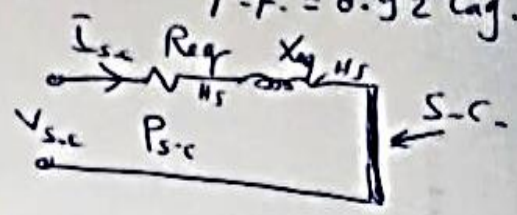 P.F. = 0.92 Lag.
I s.c Req HS Xeq HS
V s.c P s-c S-C-